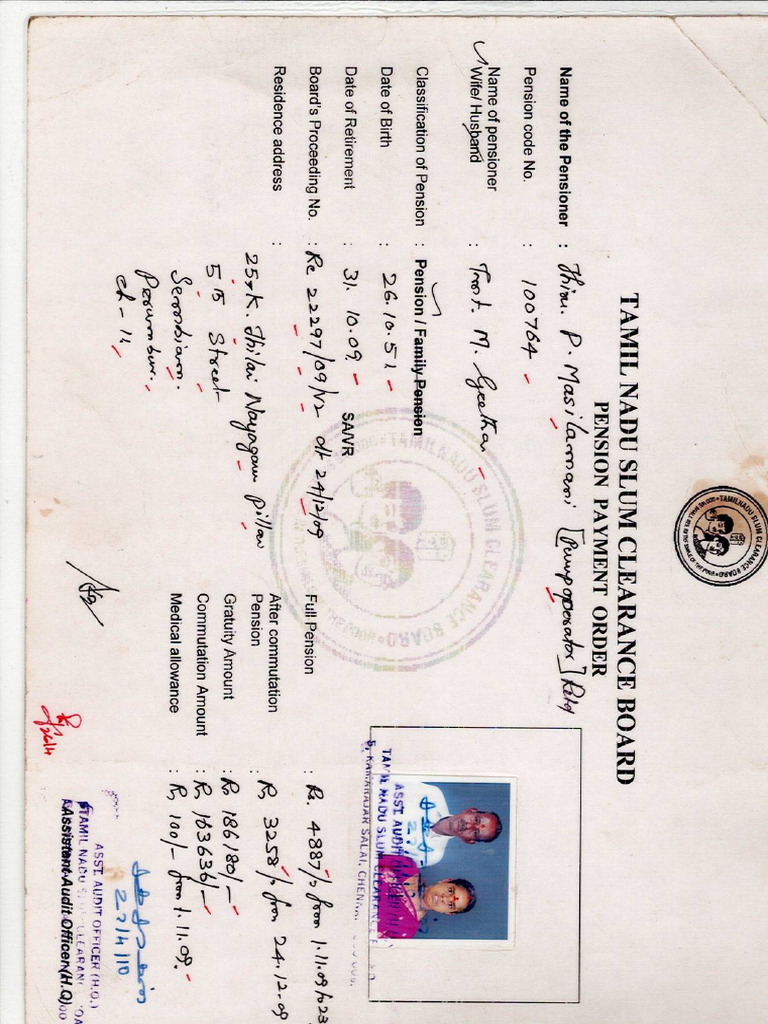 TAMIL NADU SLUM CLEARANCE BOARD
PENSION PAYMENT ORDER
Name of the Pensioner : Thiru. P. Masilamani [Pump operator] Retd
Pension code No. : 100764
Name of pensioner
Wife/ Husband : Tmt. M. Geetha
Classification of Pension : Pension / Family Pension
Date of Birth : 26.10.51
Date of Retirement : 31.10.09 SA/VR
Board's Proceeding No. : Rc 22297/09/V2 dt 24/12/09
Residence address :
25, K. Thilai Nayagam Pillai
5th Street
Sembiam.
Perambur.
ch - 11
Full Pension : Rs. 4887/- from 1.11.09 to 23
After commutation
Pension : Rs 3258/- from 24.12.09
Gratuity Amount : Rs 186180/-
Commutation Amount : Rs 163636/-
Medical allowance : Rs 100/- from 1.11.09.
ASSI. AUDIT
TAMIL NADU SLUM CLEARANCE
5, KAMARAJAR SALAI, CHENNAI
26/4
27/4/10
ASST. AUDIT OFFICER (H.Q.)
TAMIL NADU SLUM CLEARANCE
Assistant Audit Officer(H.Q)
TAMILNADU SLUM CLEARANCE BOARD
TAMILNADU SLUM CLEARANCE BOARD